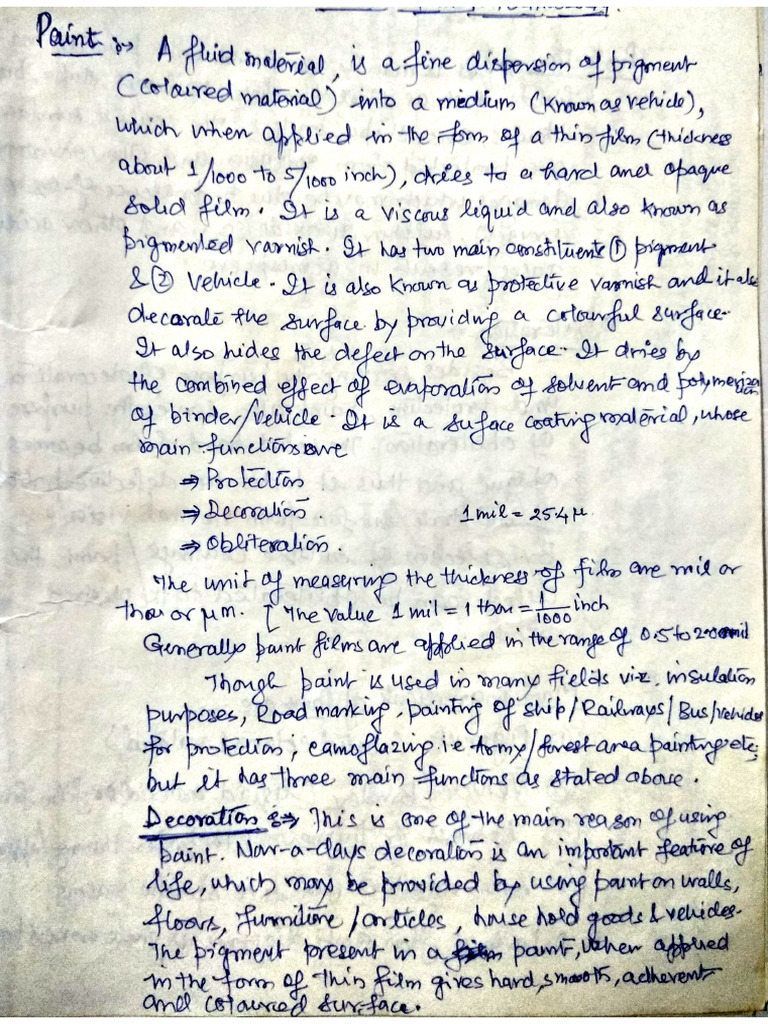 Paint :→ A fluid material, is a fine dispersion of pigment
(coloured material) into a medium (known as vehicle),
which when applied in the form of a thin film (thickness
about 1/1000 to 5/1000 inch), dries to a hard and opaque
solid film. It is a viscous liquid and also known as
pigmented varnish. It has two main constituents ① pigment
& ② vehicle. It is also known as protective varnish and it also
decorate the surface by providing a colourful surface.
It also hides the defect on the surface. It dries by
the combined effect of evaporation of solvent and polymerization
of binder/vehicle. It is a surface coating material, whose
main functions are
⇒ Protection
⇒ Decoration.
1 mil = 25.4 μ.
⇒ Obliteration.
The unit of measuring the thickness of film are mil or
thou or μm. [The value 1 mil = 1 thou = 1/1000 inch
Generally paint films are applied in the range of 0.5 to 2.0 mil
Though paint is used in many fields viz. insulation
purposes, Road marking, painting of ship/Railways/Bus/vehicles
for protection, camoflazing i.e army/forest area painting etc;
but it has three main functions as stated above.
Decoration :⇒ This is one of the main reason of using
paint. Now-a-days decoration is an important feature of
life, which may be provided by using paint on walls,
floors, furniture/articles, house hold goods & vehicles.
The pigment present in a paint, when applied
in the form of thin film gives hard, smooth, adherent
and coloured surface.